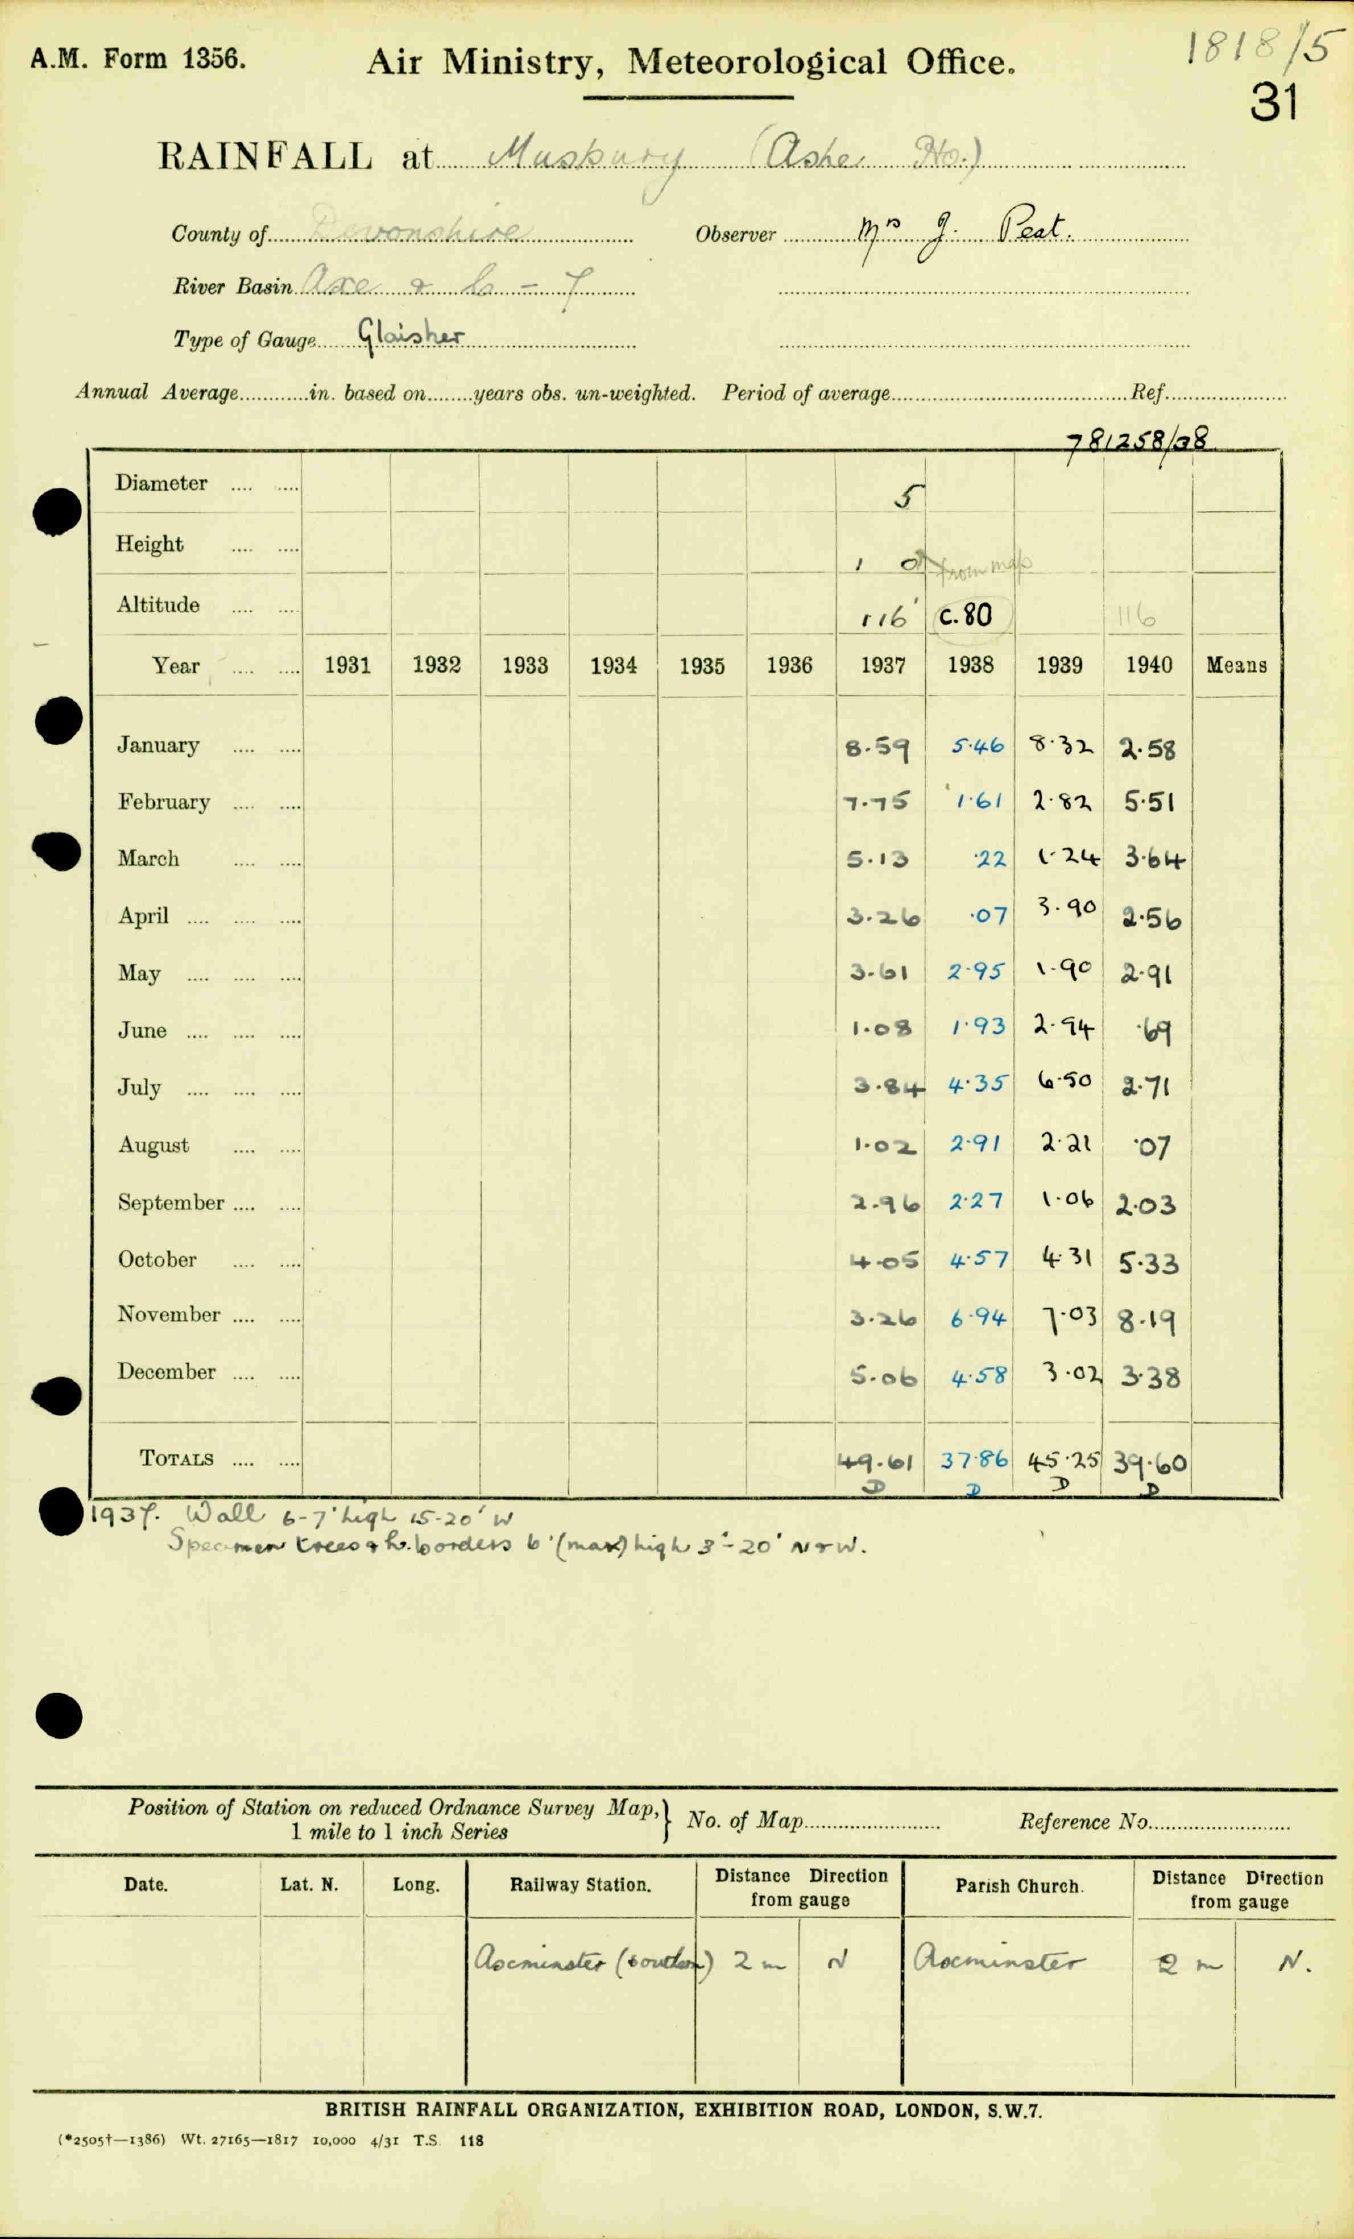 A.M. Form 1356.
Air Ministry, Meteorological Office.
1818/5
31
RAINFALL at Musbury (Ashe Ho.)
County of Devonshire Observer Mrs J. Peat.
River Basin Axe & C - 7
Type of Gauge Glaisher
Annual Average in. based on years obs. un-weighted. Period of average Ref.
781258/38
Diameter 5
Height 1 0 from map
Altitude 116' c.80 116
Year 1931 1932 1933 1934 1935 1936 1937 1938 1939 1940 Means
January 8.59 5.46 8.32 2.58
February 7.75 1.61 2.82 5.51
March 5.13 .22 1.24 3.64
April 3.26 .07 3.90 2.56
May 3.61 2.95 1.90 2.91
June 1.08 1.93 2.94 .69
July 3.84 4.35 6.50 2.71
August 1.02 2.91 2.21 .07
September 2.96 2.27 1.06 2.03
October 4.05 4.57 4.31 5.33
November 3.26 6.94 7.03 8.19
December 5.06 4.58 3.02 3.38
TOTALS 49.61 37.86 45.25 39.60
D D D D
1937. Wall 6-7' high 15-20' W
Specimen trees & h. borders 6' (max) high 3'-20' N & W.
Position of Station on reduced Ordnance Survey Map,} No. of Map Reference No.
1 mile to 1 inch Series
Date. Lat. N. Long. Railway Station. Distance Direction from gauge Parish Church. Distance Direction from gauge
Axminster (southern) 2 m N Axminster 2 m N.
BRITISH RAINFALL ORGANIZATION, EXHIBITION ROAD, LONDON, S.W.7.
(*2505†—1386) Wt. 27165—1817 10,000 4/31 T.S. 118